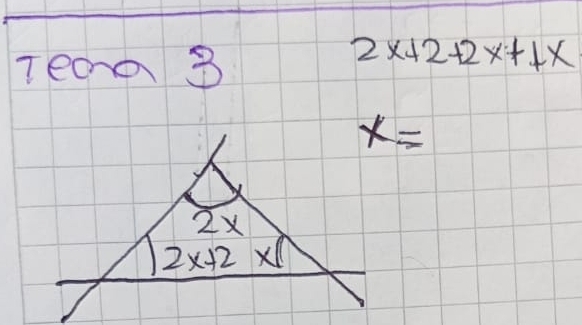 Tema 3
2x+2+2x+1x
x=
2x
2x+2 x